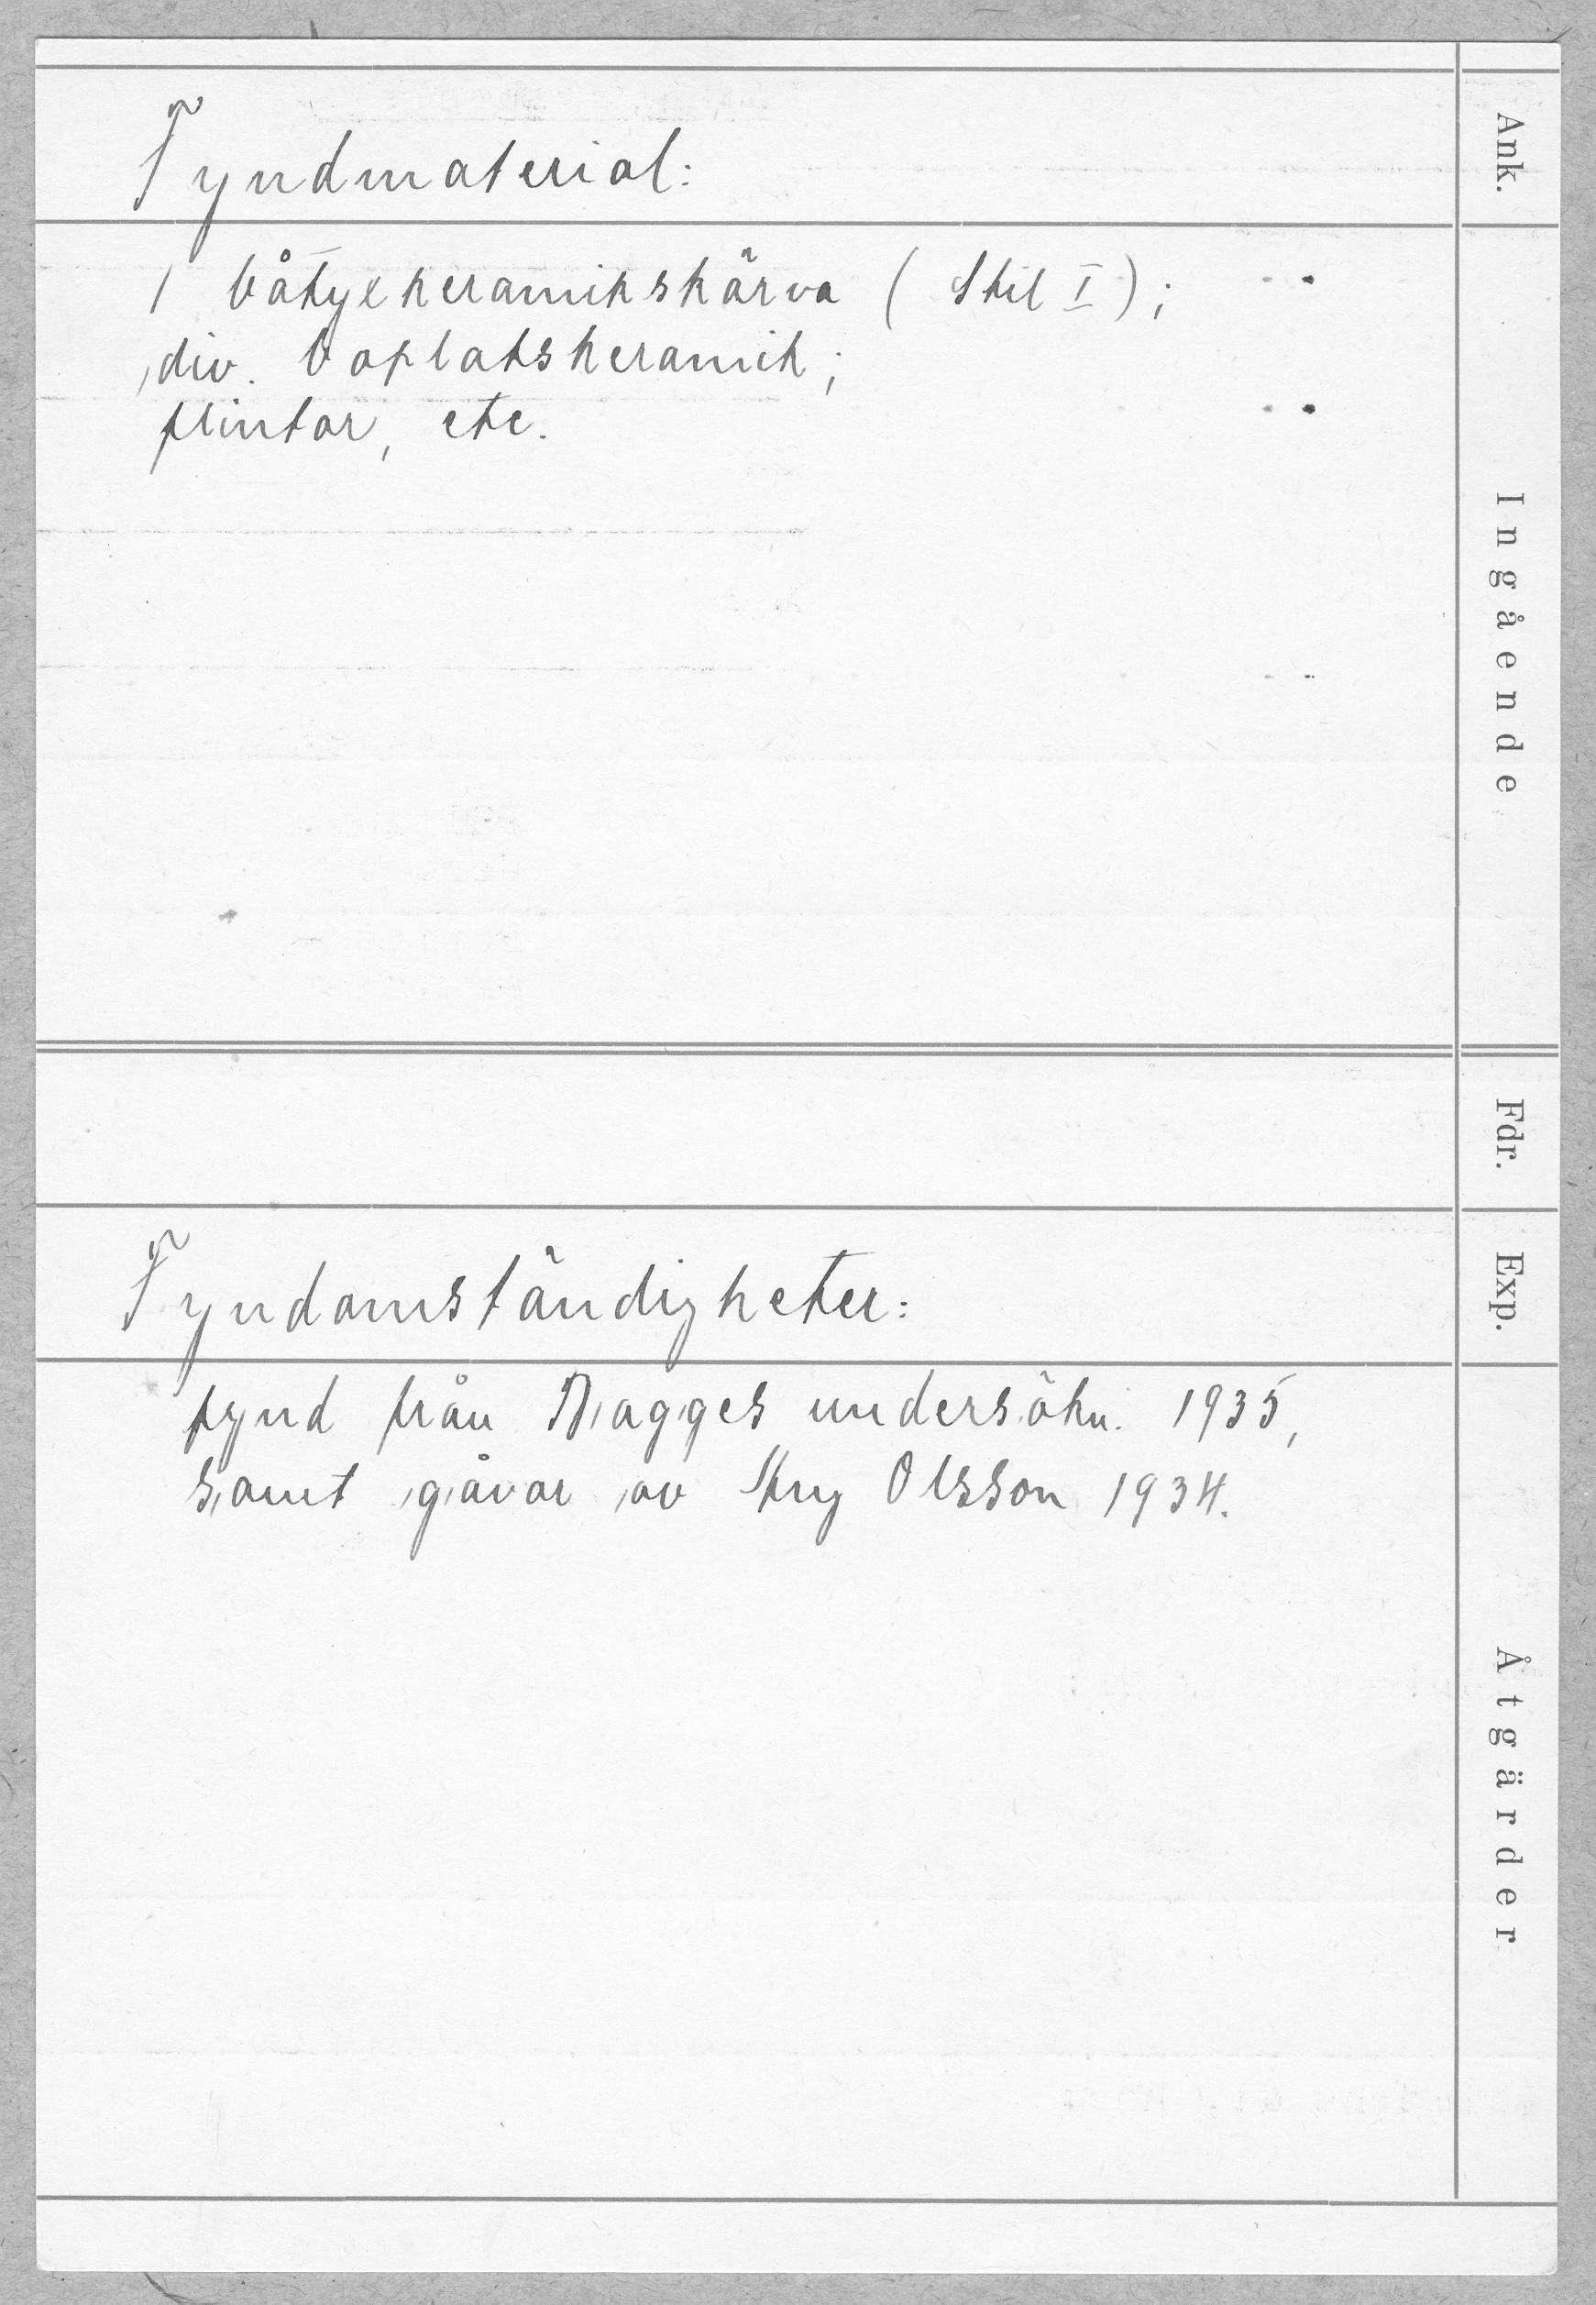 Fyndmaterial:
1 båtyxkeramikskärva (Stil I);
div. boplatskeramik;
flintor, etc.
Fyndomständigheter:
fynd från Bagges undersökn. 1935,
samt gåvor av Olsson 1934.
Ank.
Ingående
Fdr.
Exp.
Åtgärder